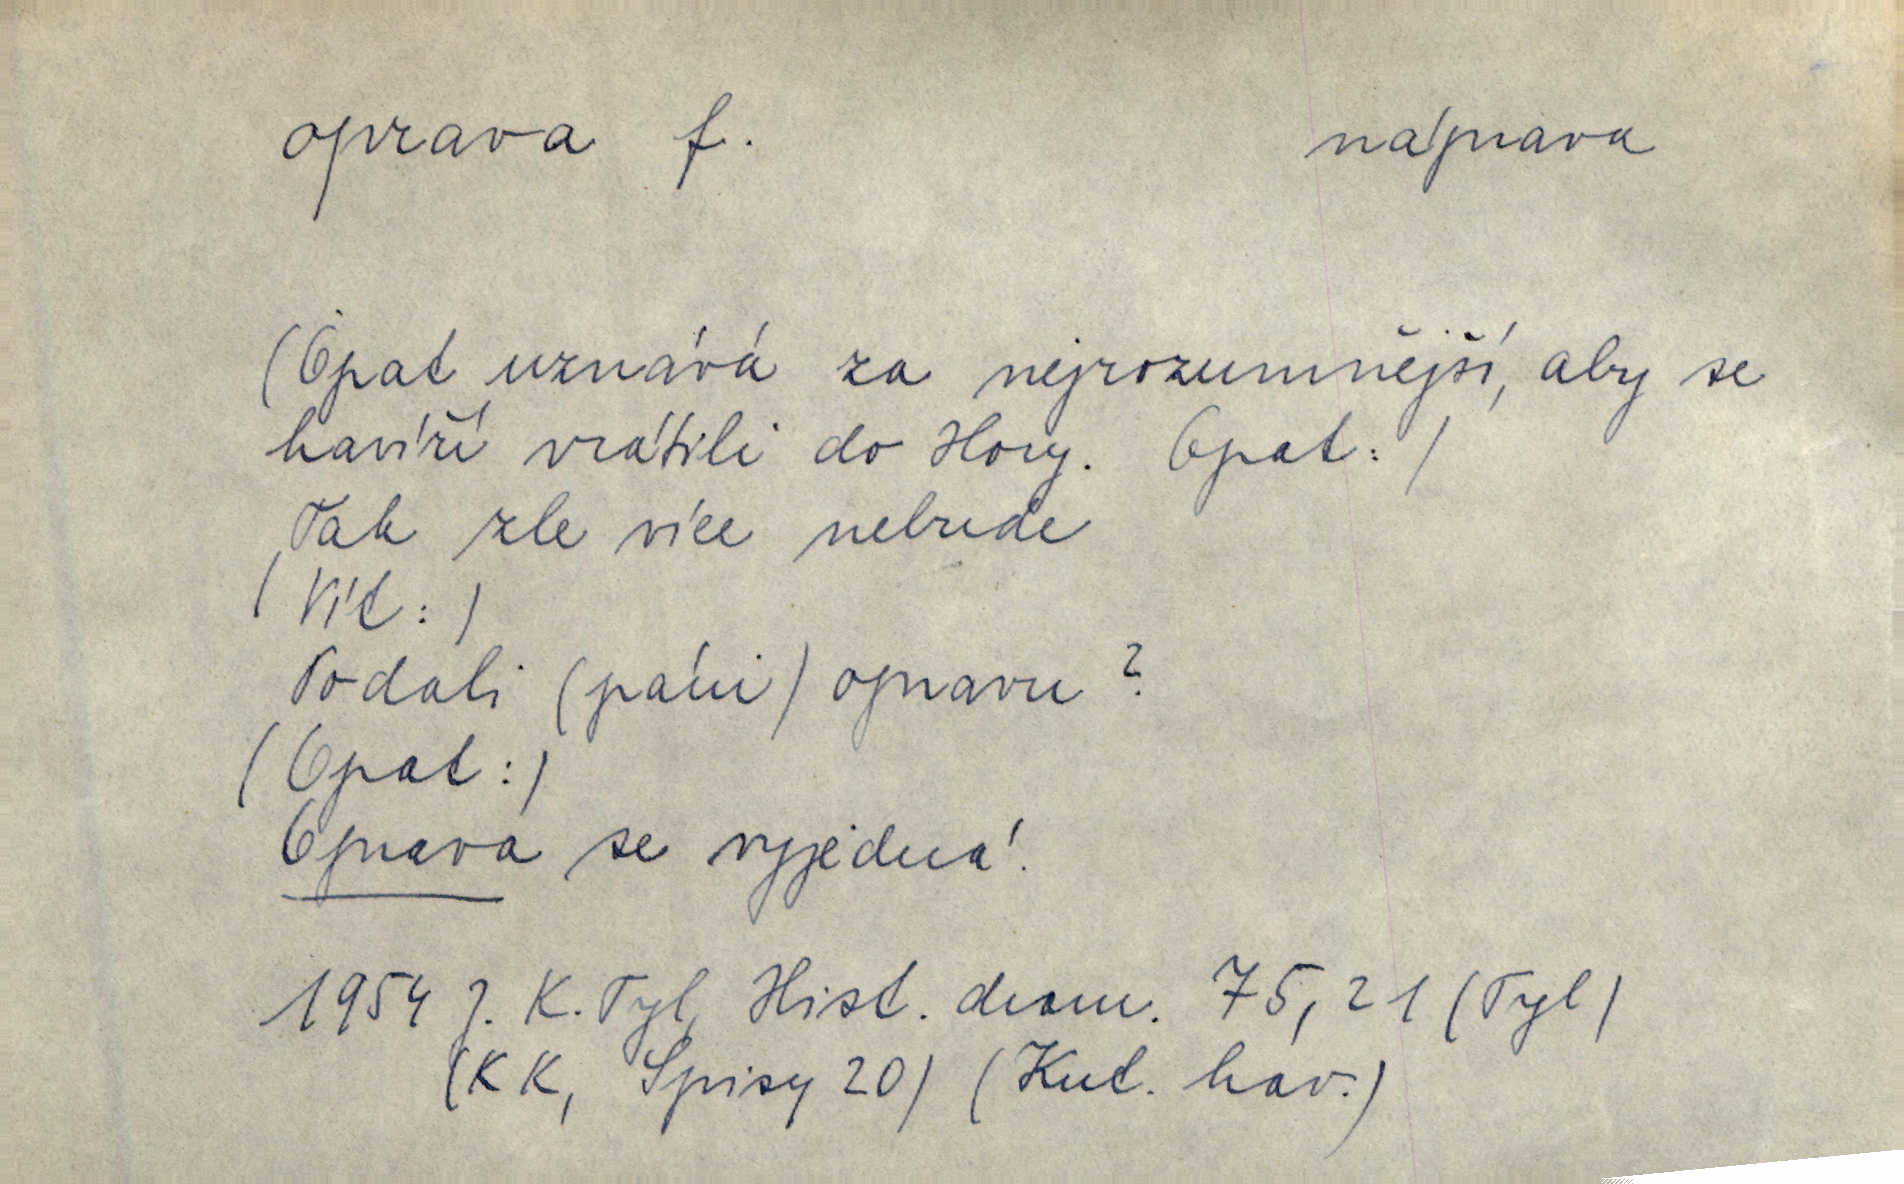 oprava f. náprava
(Opat uznává za nejrozumnější, aby se
havíři vrátili do Hory. Opat:)
Tak zle více nebude
(Vít:)
Podali (páni) opravu?
(Opat:)
Oprava se vyjedná.
1954 J. K. Tyl, Hist. dram. 75,21 (Tyl)
(KK, Spisy 20) (Kut. hav.)